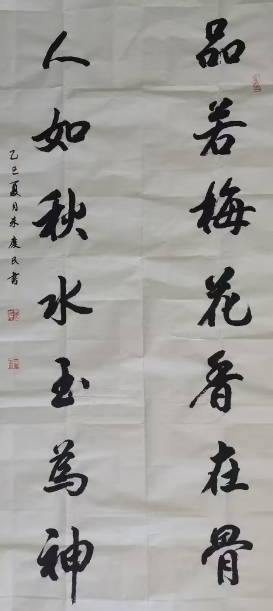 品若梅花香在骨
人如秋水玉為神
乙丑夏月朱慶民書